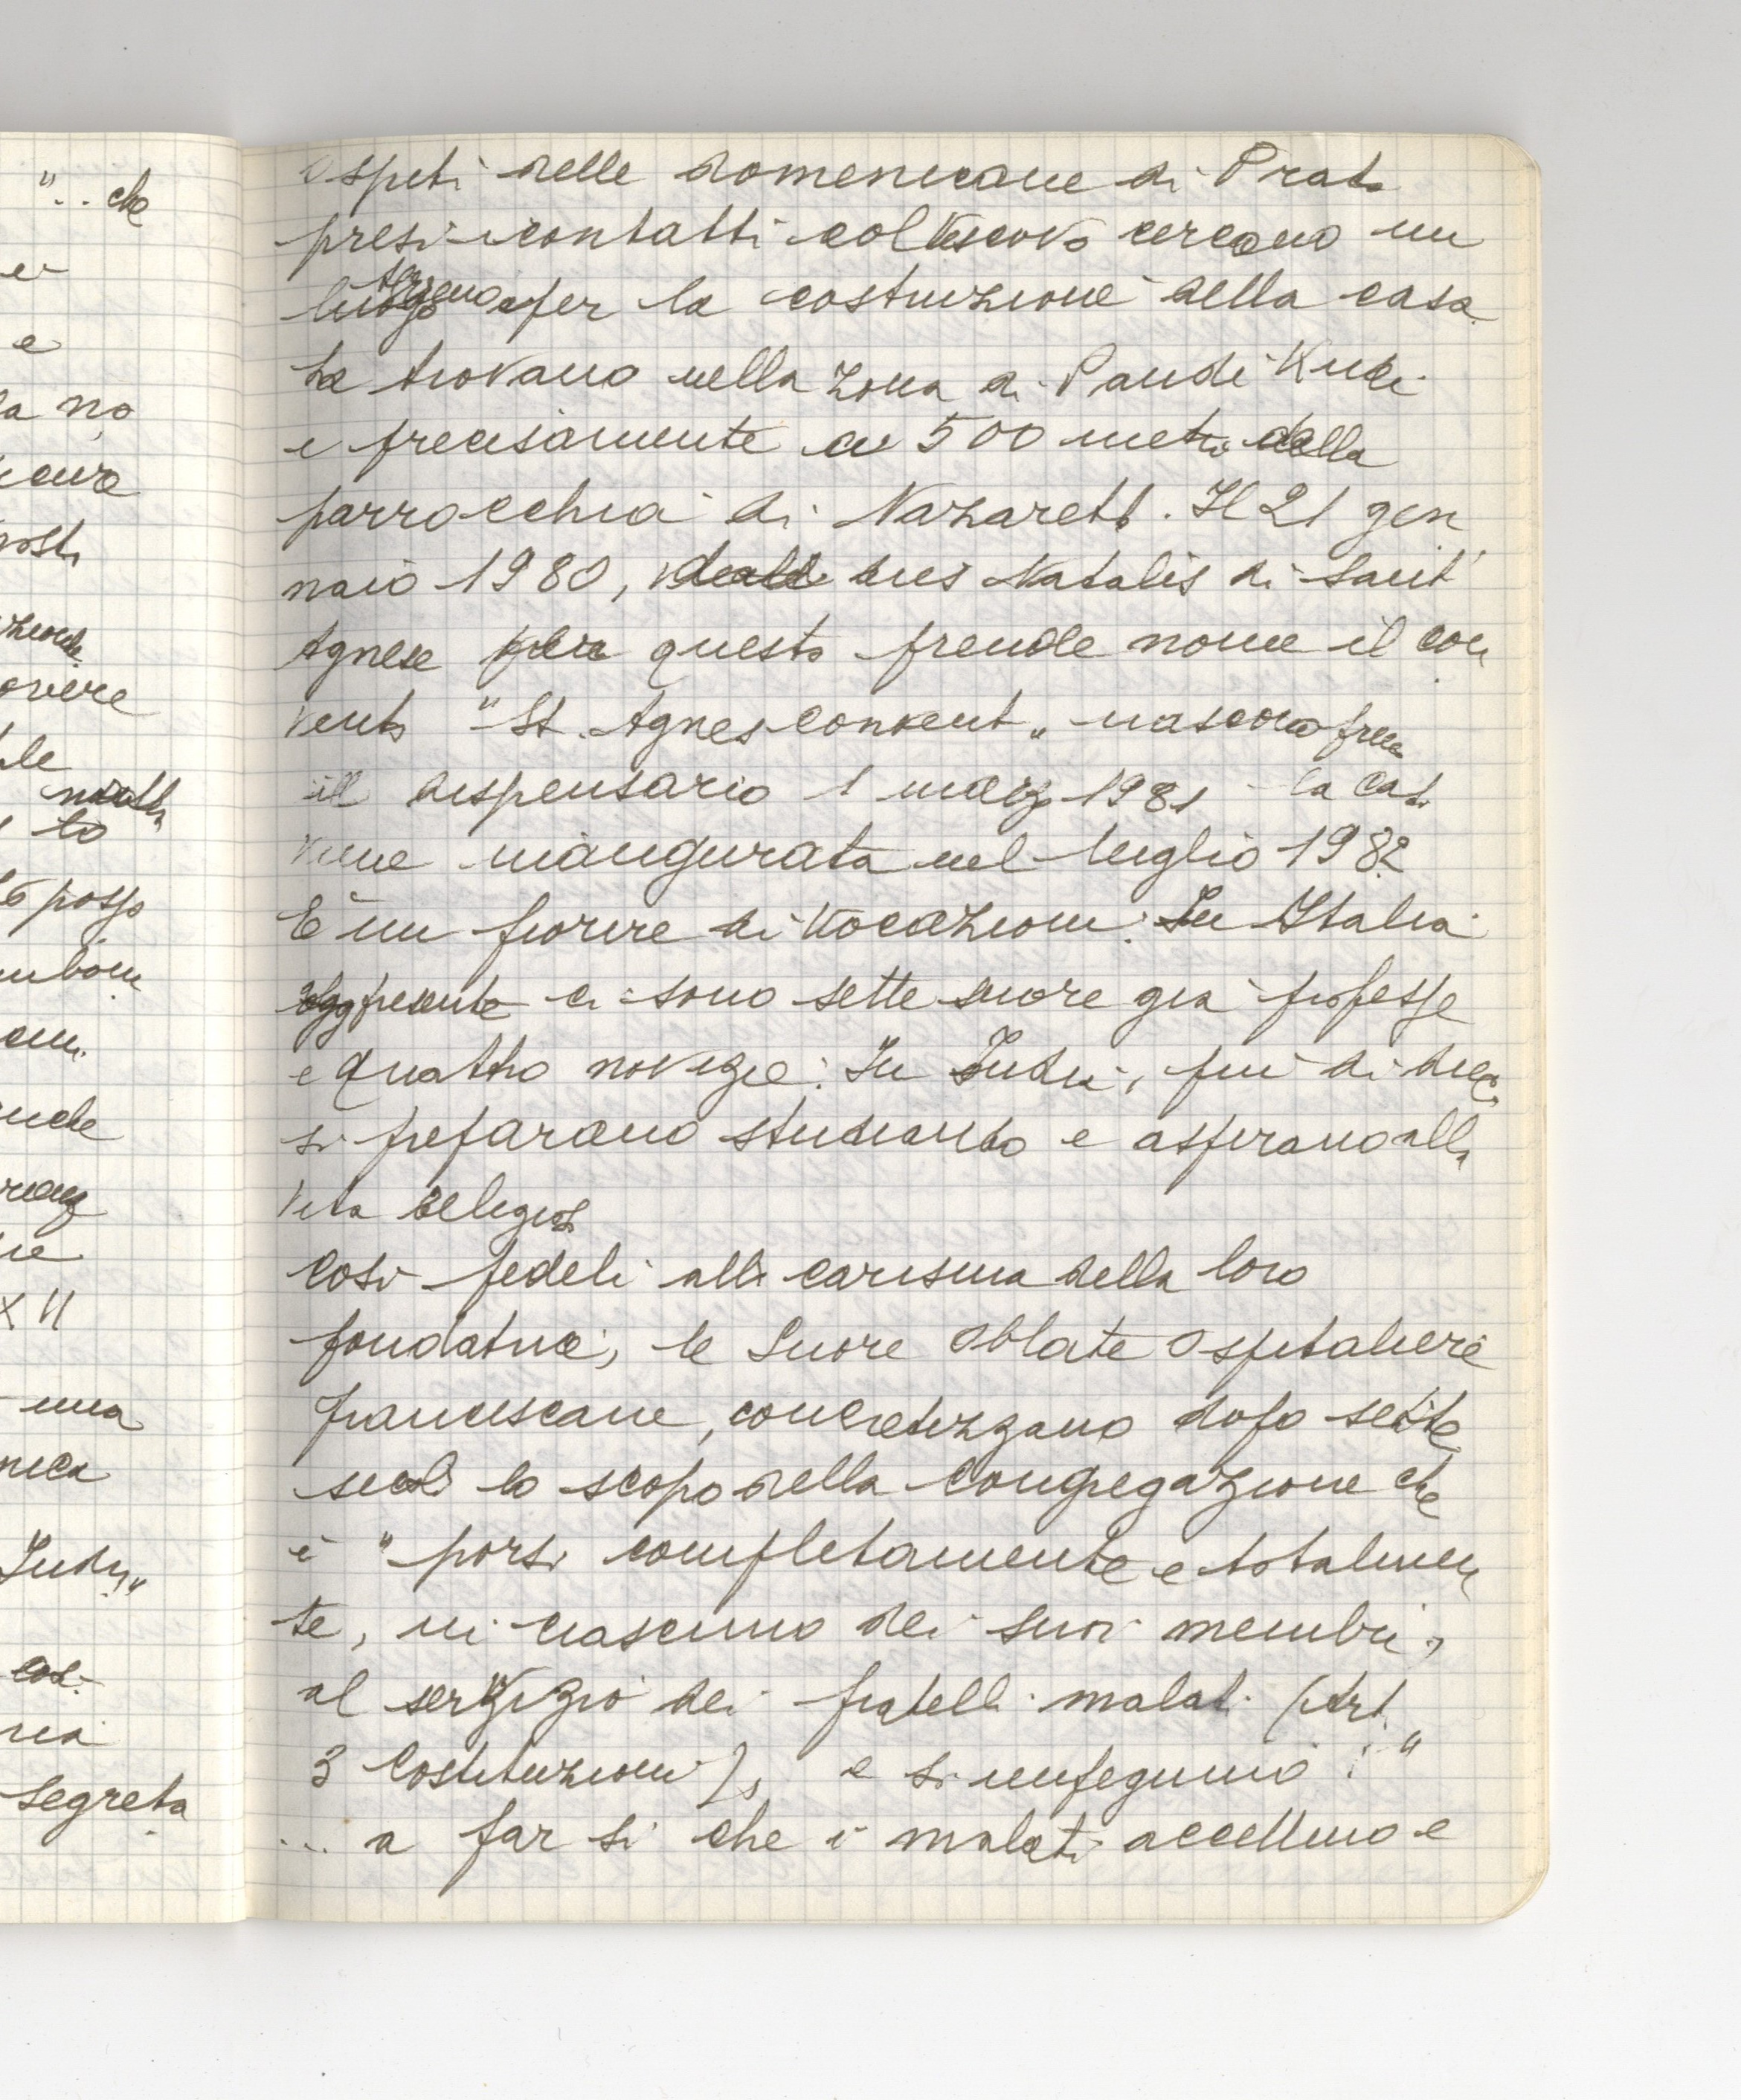 ".. che
e
e
a no
cura
posti
overe
le
lo
posso
anche
re
XII
una
nica
Indu"
cos-
ria
segreta
Ospiti delle domenicane di Prato
presi i contatti col Vescovo cercano un
luogo terreno per la costruzione della casa
Lo trovano nella zona di Pandi Kudi
e precisamente a 500 metri dalla
parrocchia di Nazareth. Il 21 gen
naio 1980, dies Natalis di Sant'
Agnese per questo prende nome il con
vento "St. Agnes Convent" nascono prima
il dispensario 1 marzo 1981 la casa
viene inaugurata nel luglio 1982
È un fiorire di vocazioni. In Italia
ci sono sette suore già professe
e quattro novizie. In India, più di dieci
si preparano studiando e aspirano alla
vita religiosa
Così fedeli al carisma della loro
fondatrice, le Suore Oblate Ospitaliere
francescane, concretizzano dopo sette
secoli lo scopo della Congregazione che
è "porsi completamente e totalmen
te, in ciascuno dei suoi membri,
al servizio dei fratelli malati (Art.
3 Costituzioni), e si impegnano: "
... a far sì che i malati accettino e